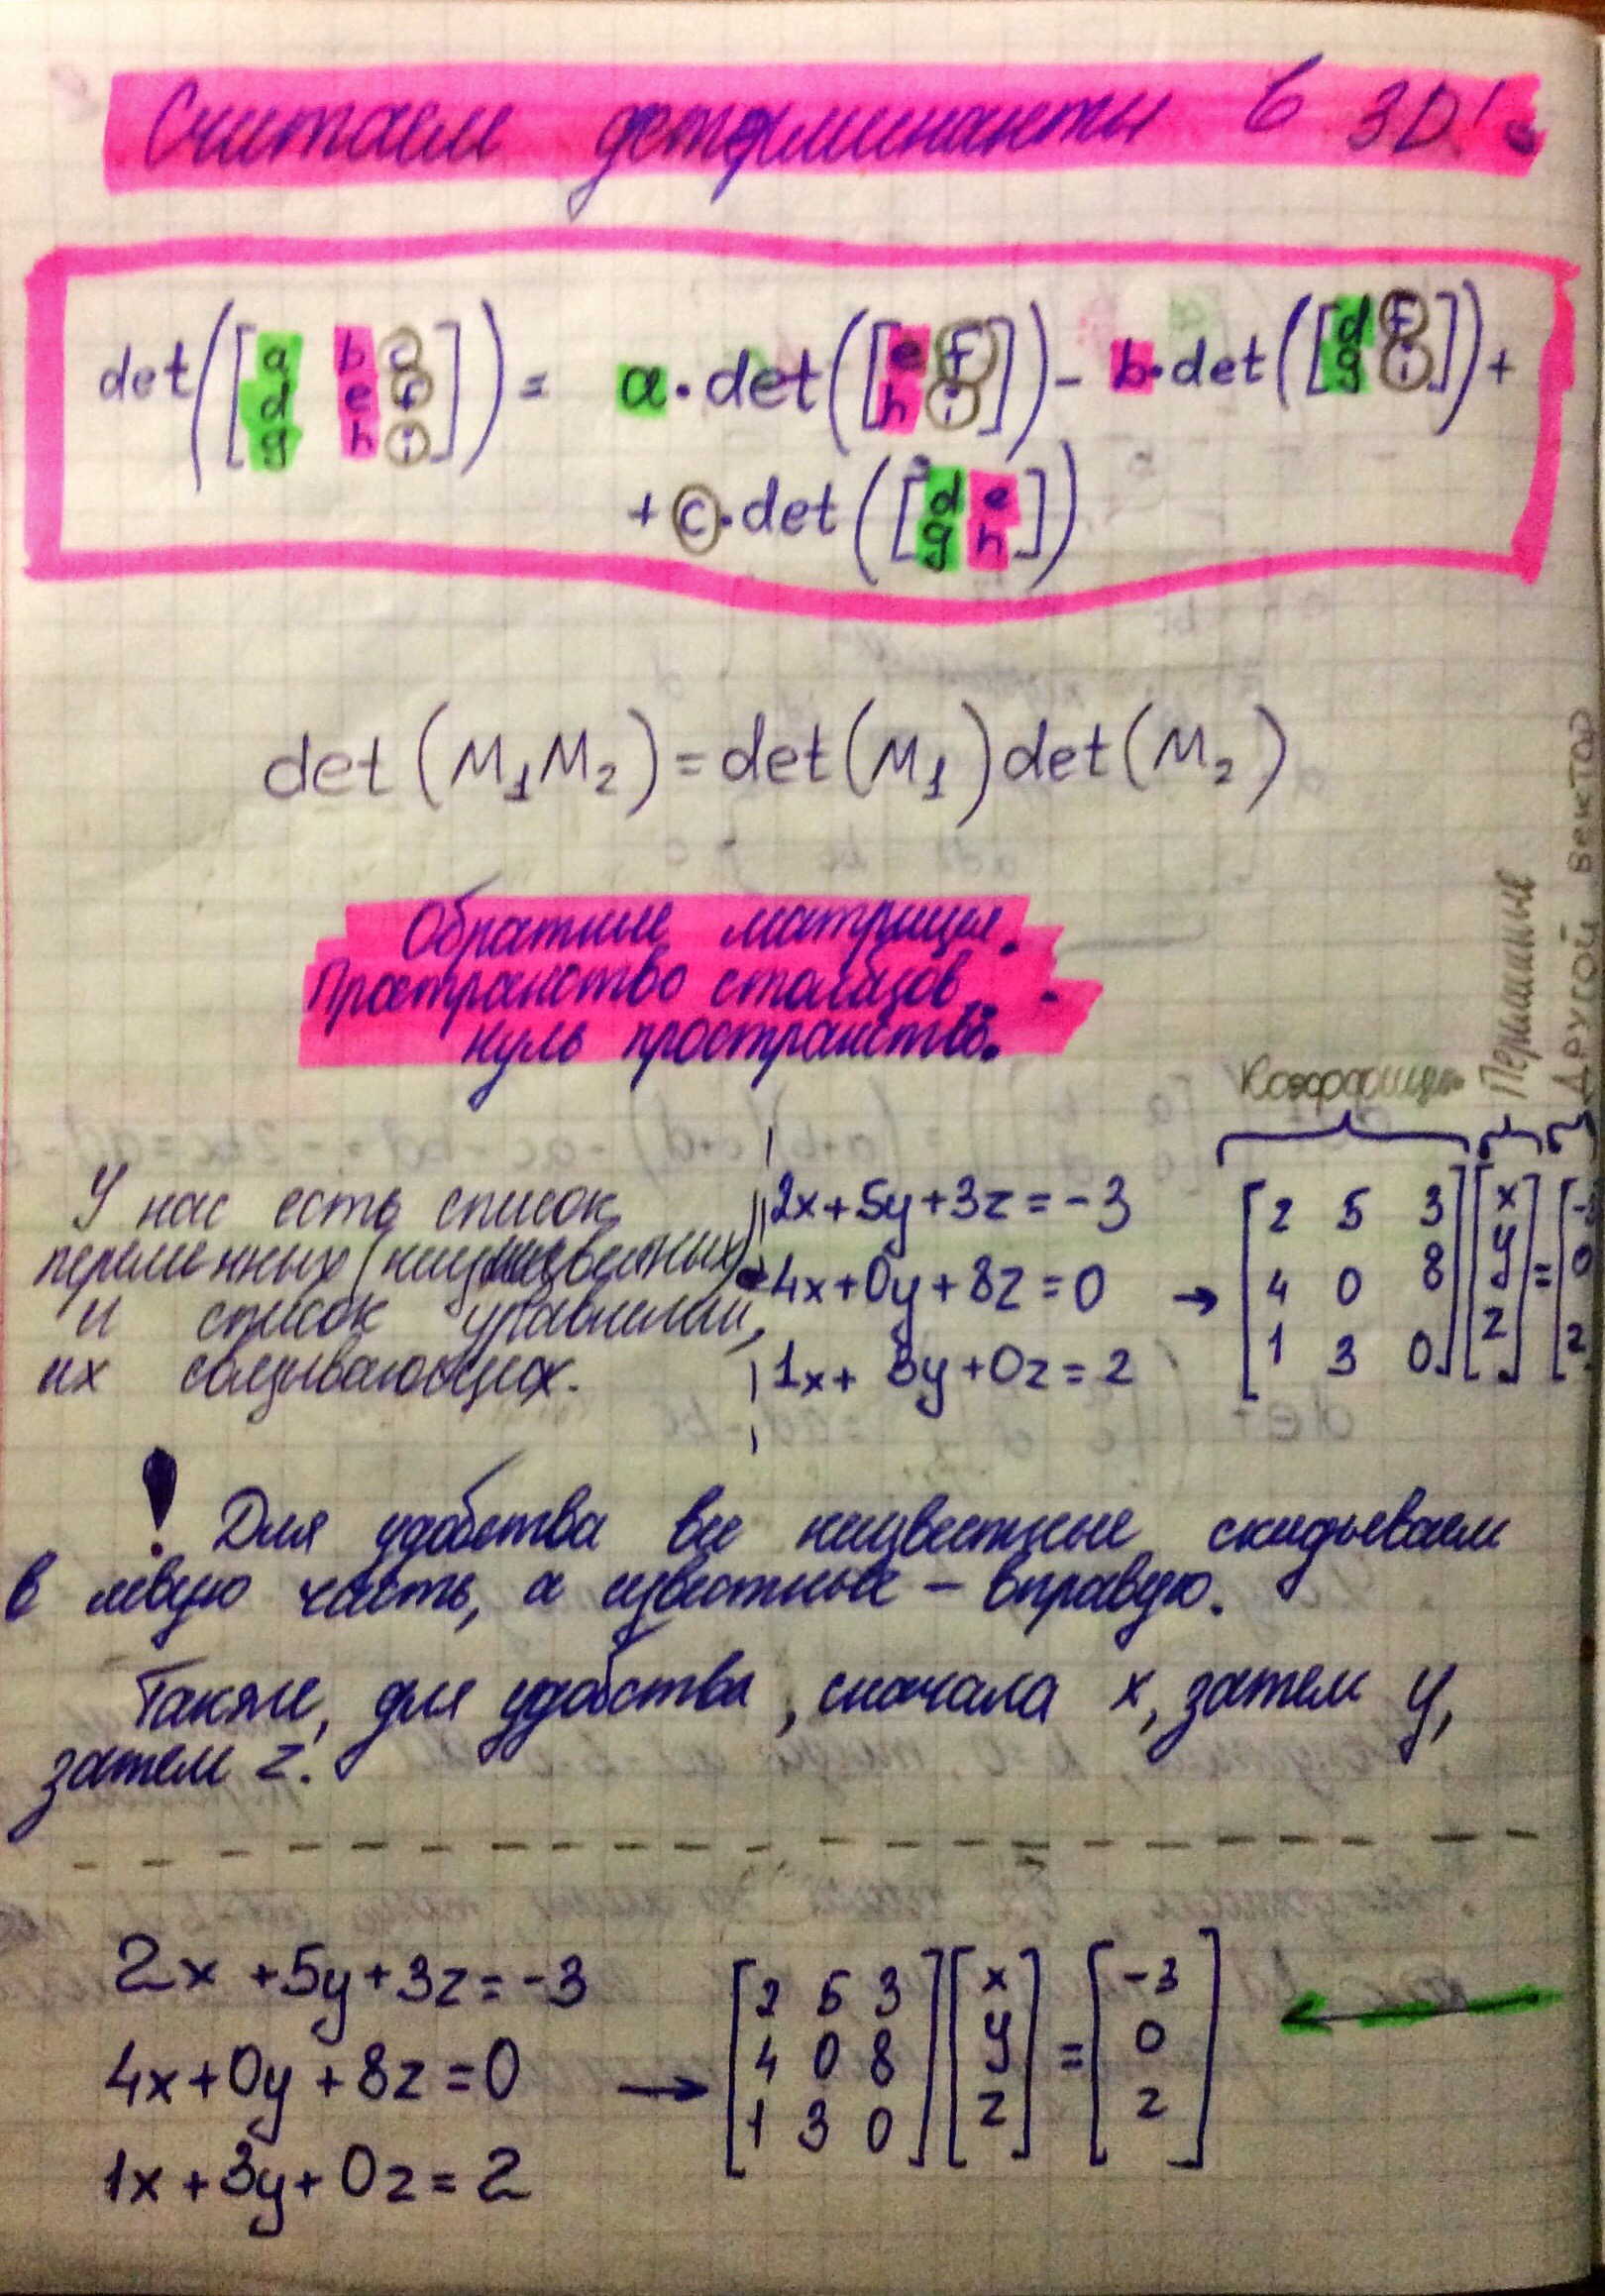 Считаем детерминанты в 3D!
det([a b c
d e f
g h i]) = a·det([e f
h i]) - b·det([d f
g i]) +
+ c·det([d e
g h])
det(M₁M₂) = det(M₁)det(M₂)
Обратные матрицы.
Пространство столбцов.
нуль пространство.
Коэффициенты
Переменные
Другой вектор
У нас есть список
переменных (неизвестных)
и список уравнений,
их связывающих.
2x+5y+3z=-3
4x+0y+8z=0
1x+3y+0z=2
→ [2 5 3
4 0 8
1 3 0] [x
y
z] = [-3
0
2
! Для удобства все неизвестные скидываем
в левую часть, а известные – вправую.
Также, для удобства, сначала x, затем y,
затем z.
2x+5y+3z=-3
4x+0y+8z=0
1x+3y+0z=2
→ [2 5 3
4 0 8
1 3 0] [x
y
z] = [-3
0
2]